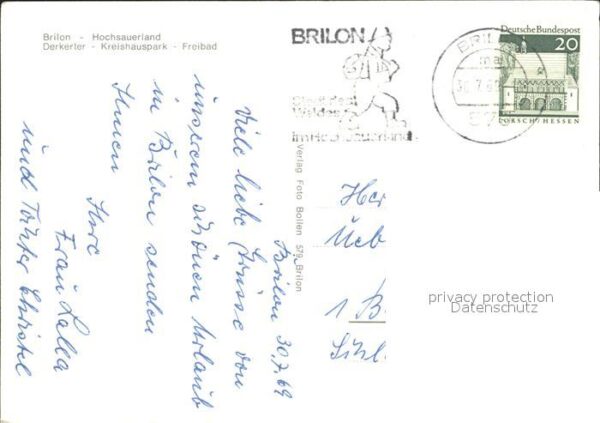 Brilon - Hochsauerland
Derkerter - Kreishauspark - Freibad
BRILON
Stadt des
Waldes
im Hochsauerland
Deutsche Bundespost
20
LORSCH/HESSEN
Verlag Foto Bollen 579 Brilon
Brilon 30.7.69
Viele liebe Grüsse von
unserem schönen Urlaub
in Brilon senden
Ihnen
Ihre
Frau Lalla
und Tochter Christel
Her
Ueb
1 B
privacy protection
Datenschutz